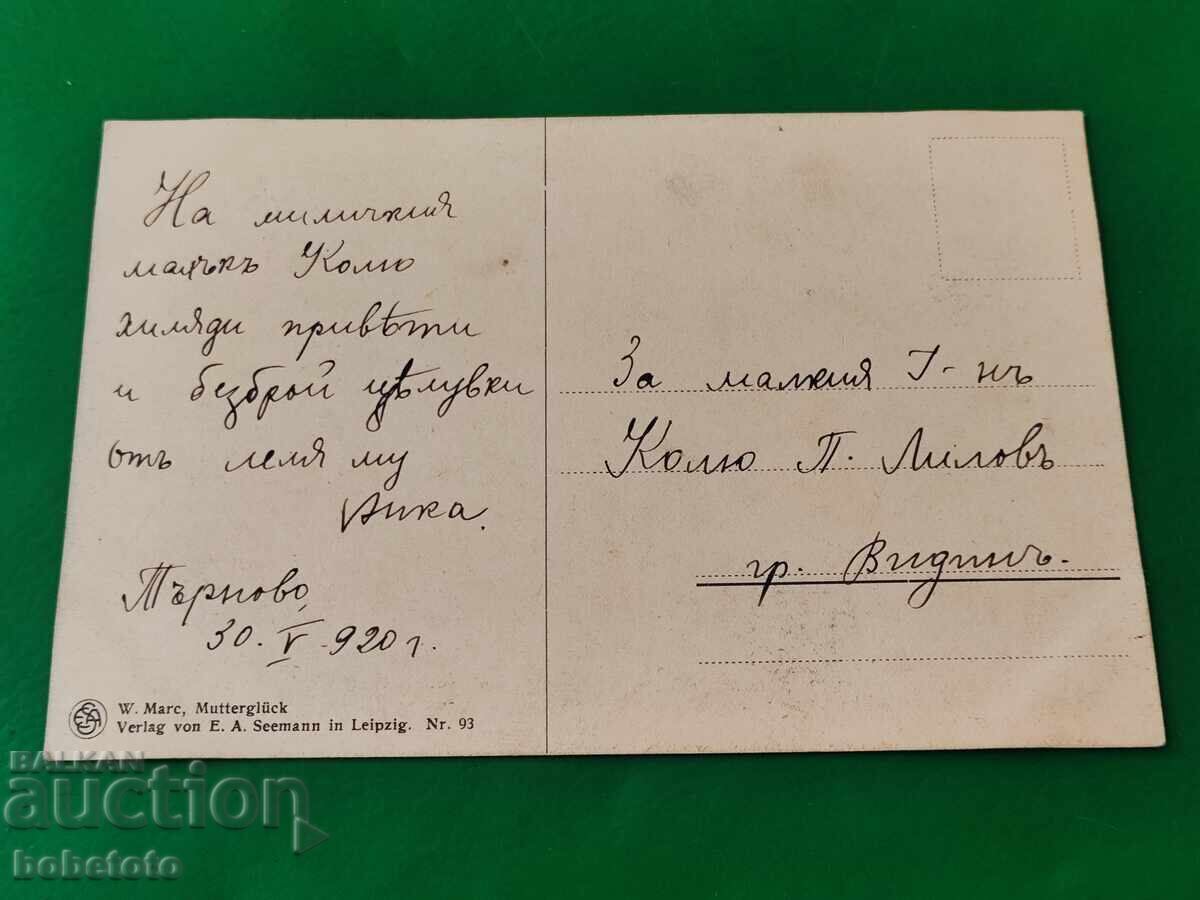 На миличкия
малъкъ Колю
хиляди привѣти
и безброй цѣлувки
отъ леля му
Анка.
Търново,
30. V 920 г.
W. Marc, Mutterglück
Verlag von E. A. Seemann in Leipzig. Nr. 93
За малкия Г-нъ
Колю П. Лиловъ
гр. Видинъ.
BALKAN
auction
bobetoto